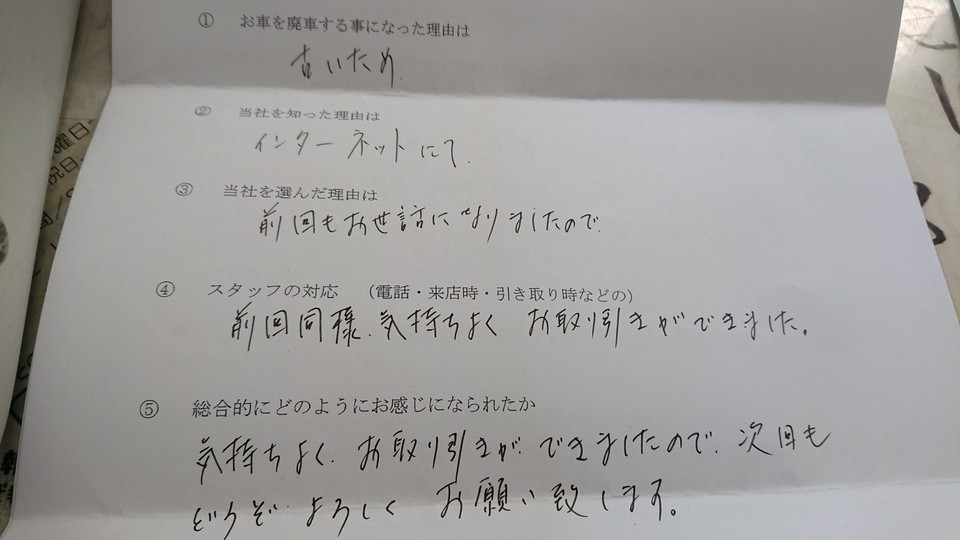 ① お車を廃車する事になった理由は
古いため.
② 当社を知った理由は
インターネットにて.
③ 当社を選んだ理由は
前回もお世話になりましたので.
④ スタッフの対応 （電話・来店時・引き取り時などの）
前回同様.気持ちよく お取り引きができました。
⑤ 総合的にどのようにお感じになられたか
気持ちよく.お取り引きが.できましたので.次回も
どうぞ.よろしく お願い致します。
曜日
祝日